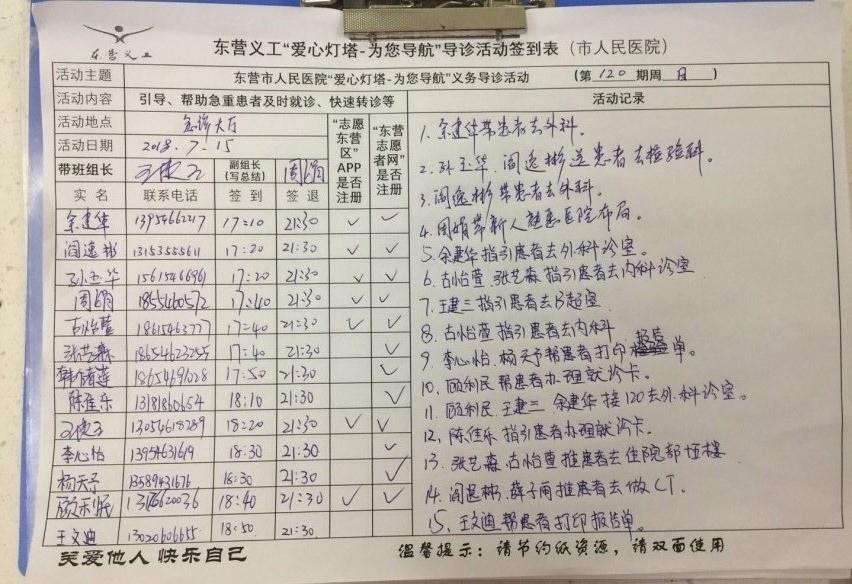 东营义工
东营义工“爱心灯塔-为您导航”导诊活动签到表（市人民医院）
活动主题 东营市人民医院“爱心灯塔-为您导航”义务导诊活动 （第 120 期周 日 ）
活动内容 引导、帮助急重患者及时就诊、快速转诊等 活动记录
活动地点 急诊大厅
活动日期 2018.7.15
带班组长 副组长（写总结） 周娟
“志愿东营区”APP是否注册
“东营志愿者网”是否注册
实名 联系电话 签到 签退
余建华 13954662217 17:10 21:30 ✓ ✓
阎逸彬 13153555611 17:20 21:30 ✓ ✓
孙玉华 15615466961 17:20 21:30 ✓ ✓
周娟 17:40 21:30 ✓ ✓
古怡萱 18615463777 17:40 21:30 ✓ ✓
张艺淼 18654623255 17:40 21:30 ✓
17:50 21:30 ✓
陈佳乐 13181860654 18:10 21:30 ✓
13054618289 18:20 21:30 ✓ ✓
李心怡 13954631619 18:30 21:30 ✓
杨天予 13589431676 18:30 21:30 ✓
顾利民 21:30 18:40 ✓ ✓
王文迪 13020606655 18:50 21:30
1. 余建华带患者去外科。
2. 孙玉华、阎逸彬送患者去检验科。
3. 阎逸彬带患者去外科。
4. 周娟带新人熟悉医院布局。
5. 余建华指引患者去外科诊室。
6. 古怡萱、张艺淼指引患者去内科诊室
7. 王建三指引患者去B超室
8. 古怡萱指引患者去内科
9. 李心怡、杨天予帮患者打印报告单。
10. 顾利民帮患者办理就诊卡。
11. 顾利民、王建三、余建华接120去外科诊室。
12. 陈佳乐指引患者办理就诊卡。
13. 张艺淼、古怡萱推患者去住院部
14. 阎逸彬、薛子雨推患者去做CT。
15. 王文迪帮患者打印报告单。
关爱他人 快乐自己
温馨提示：请节约纸资源，请双面使用